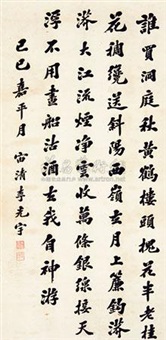 誰買洞庭秋黄鶴樓頭槐花半老桂
花稠纔送斜陽西嶺去月上簾鉤
滸大江流煙净雲收萬條銀線接天
浮不用畫船沽酒去我自神游
己巳嘉平月 宙清李光宇